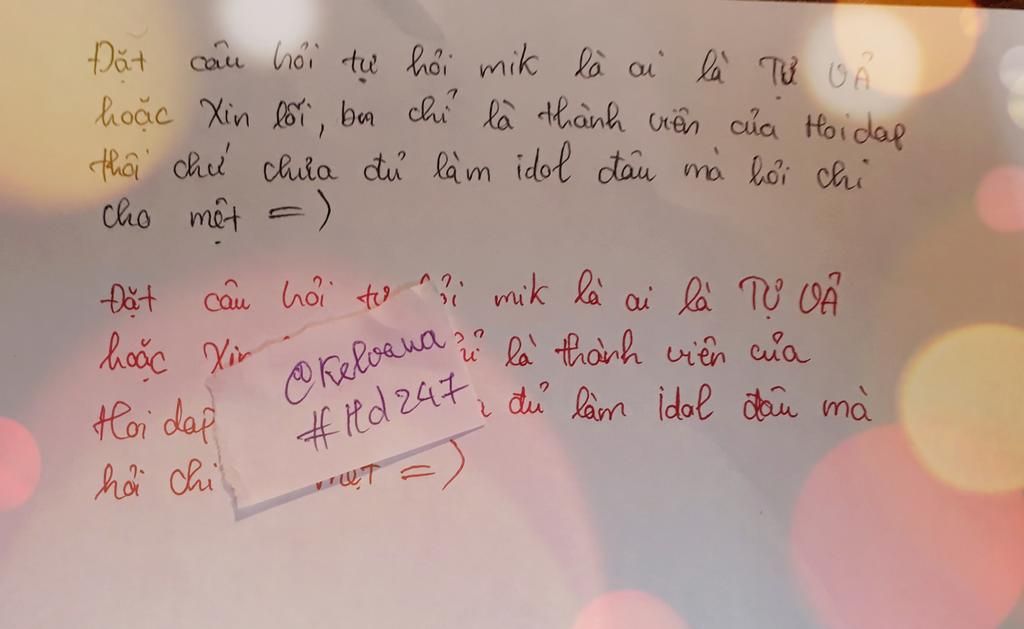 Đặt câu hỏi tự hỏi mik là ai là TỰ VẢ
hoặc Xin lỗi, bạn chỉ là thành viên của Hoidap
thôi chứ chưa đủ làm idol đâu mà hỏi chi
cho mệt =)
Đặt câu hỏi tự hỏi mik là ai là TỰ VẢ
hoặc Xin là thành viên của
Hoi dap đủ làm idol đâu mà
hỏi chi mệt =)
@Keloana
#Hd247